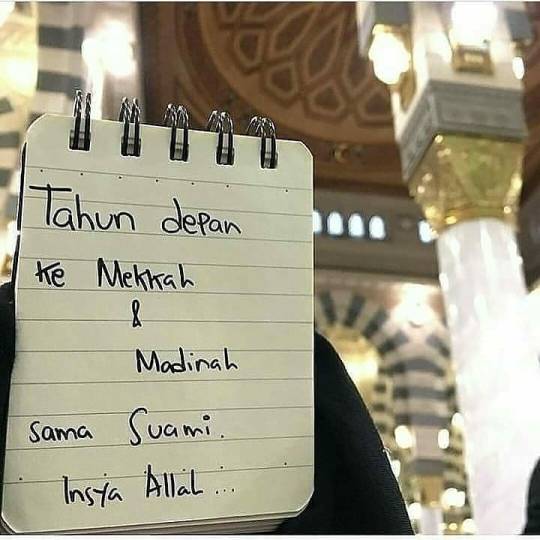 Tahun depan
ke Mekkah
&
Madinah
sama Suami.
Insya Allah...